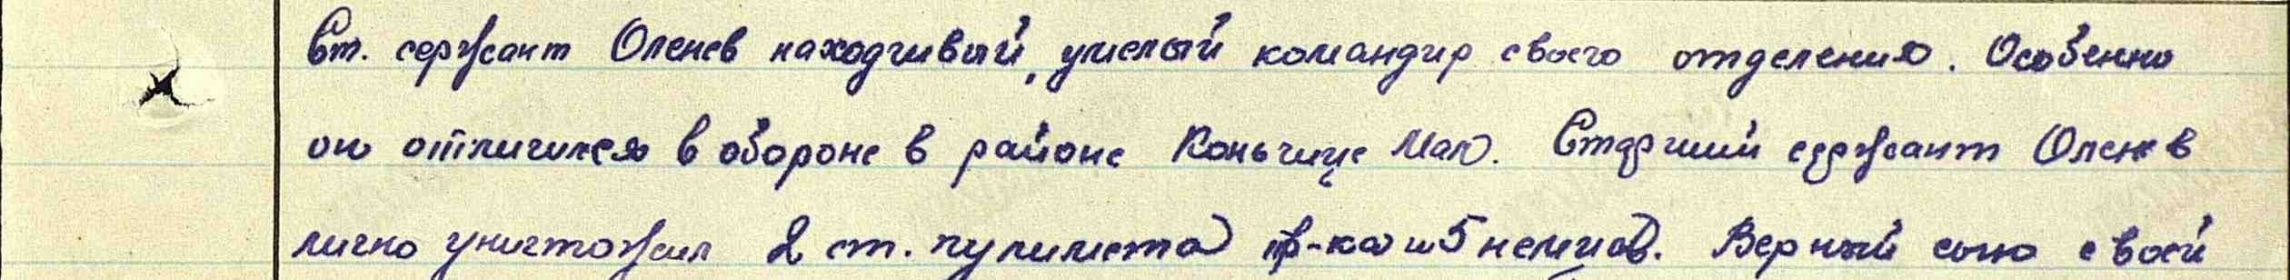 Ст. сержант Оленев находчивый, умелый командир своего отделения. Особенно
он отличился в обороне в районе Коньчице Мал. Старший сержант Оленев
лично уничтожил 2 ст. пулимета пр-ка и 5 немцев. Верный сын своей